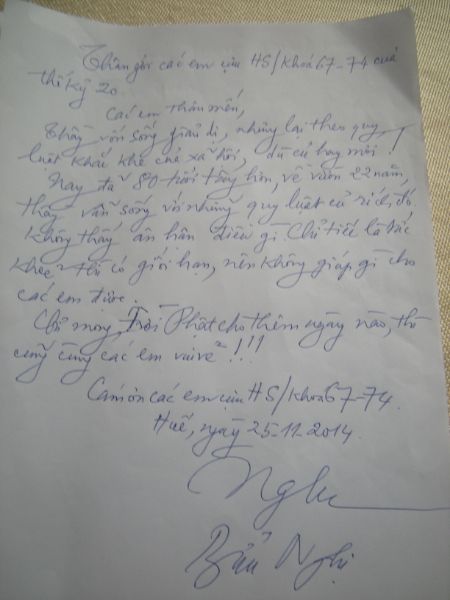 Thân gởi các em cựu HS/khoá 67-74 của
thế kỷ 20
Các em thân mến,
Thầy vốn sống giản dị, nhưng lại theo quy
luật khắc khe của xã hội, dù cũ hay mới!
Nay đã 80 tuổi tròn hơn, về vườn 22 năm,
thầy vẫn sống với những quy luật cũ rích đó
không thấy ân hận điều gì. Chỉ tiếc là sức
khoẻ thì có giới hạn, nên không giúp gì cho
các em được.
Chỉ mong, Trời Phật cho thêm ngày nào, thì
cũng cùng các em vui vẻ!!!
Cám ơn các em cựu HS/khoá 67-74.
Huế, ngày 25-11-2014.
Bửu Nghị